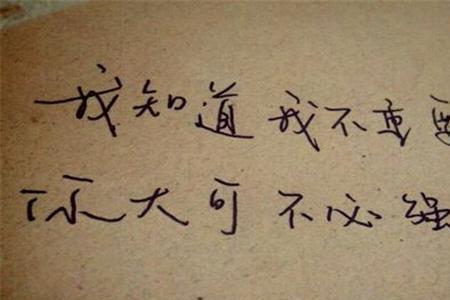 我知道我不重要
你大可不必强